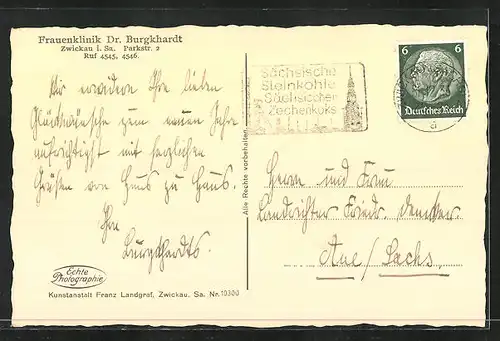 Frauenklinik Dr. Burgkhardt
Zwickau i. Sa. Parkstr. 2
Ruf 4545, 4546.
Wir erwidern Ihre lieben
Glückwünsche zum neuen Jahre
aufrichtigst mit herzlichen
Grüßen von Haus zu Haus.
Ihre
Burgkhardts.
Echte
Photographie
Kunstanstalt Franz Landgraf, Zwickau. Sa. Nr. 10300
Alle Rechte vorbehalten
Sächsische
Steinkohle
Sächsischer
Zechenkoks
6 6
Deutsches Reich
Herrn und Frau
Landrichter Friedr.
Aue / Sachs.